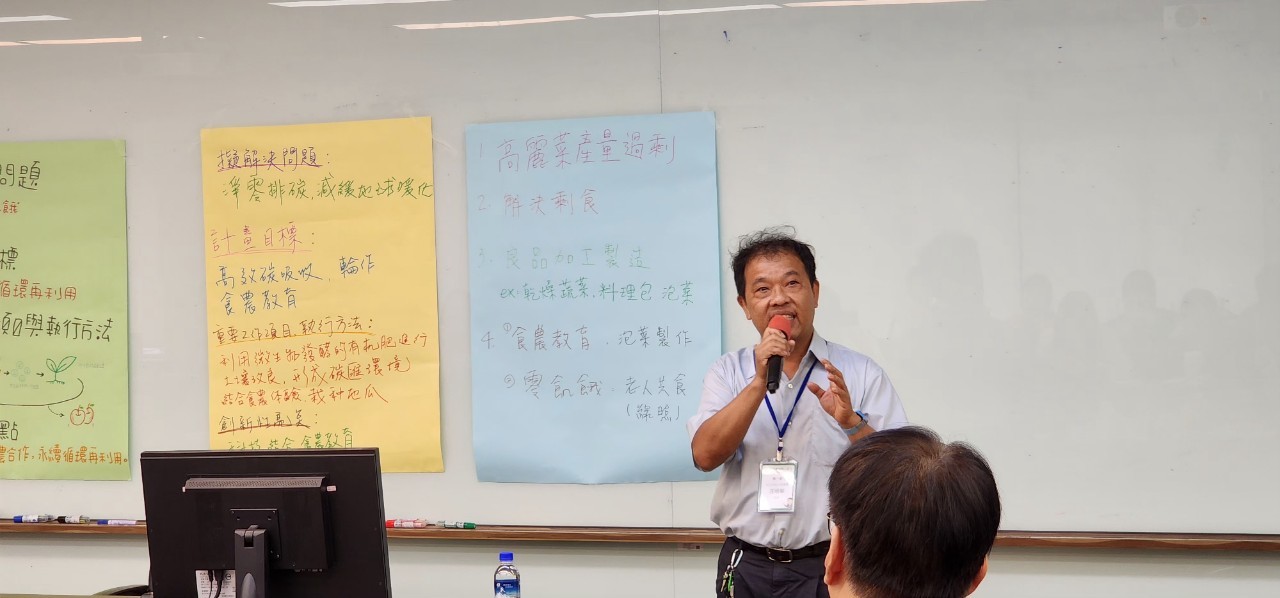 問題
標
循環再利用
項目與執行方法
點
農合作,永續循環再利用。
擬解決問題:
淨零排碳,減緩地球暖化
計畫目標:
高效碳吸收、輪作
食農教育
重要工作項目 執行方法:
利用微生物發酵的有机肥進行
土壤改良,形成碳匯環境
結合食農体驗 栽种地瓜
創新性高
結合食農教育
1. 高麗菜產量過剩
2. 解決剩食
3. 良品加工製造
ex.乾燥蔬菜.料理包 泡菜
4. ①食農教育.泡菜製作
② 零飢餓.老人共食